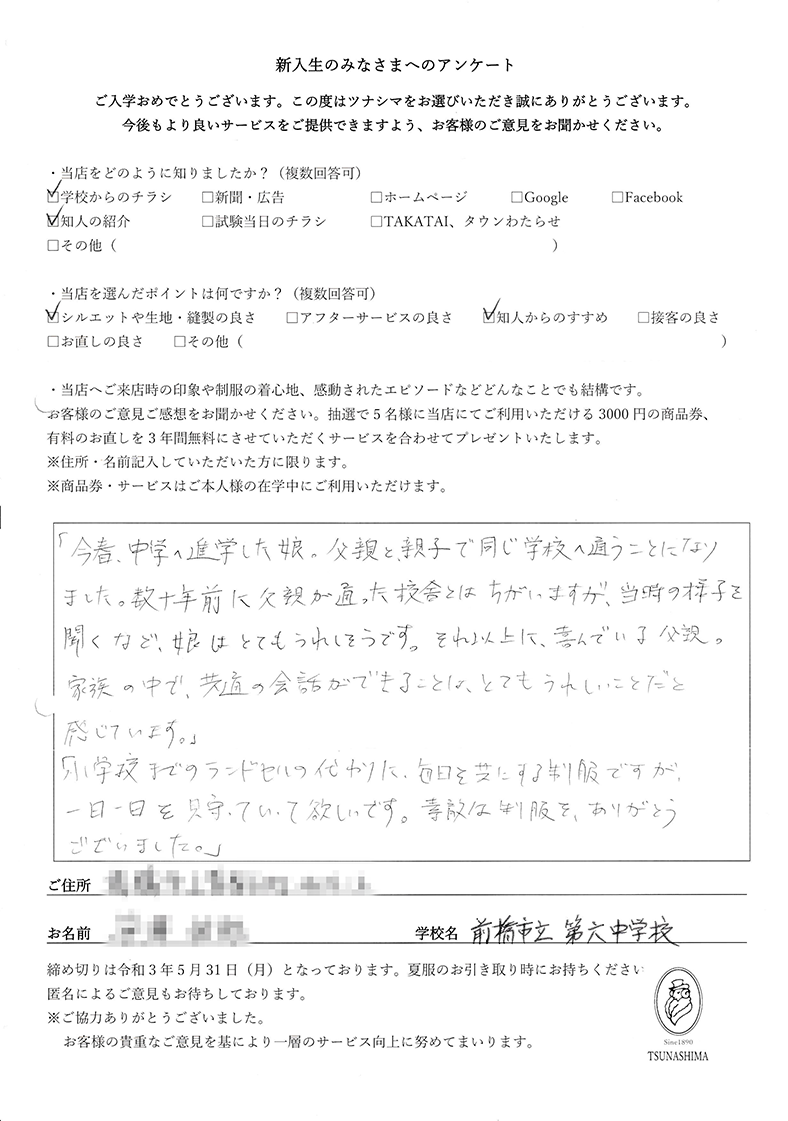 新入生のみなさまへのアンケート
ご入学おめでとうございます。この度はツナシマをお選びいただき誠にありがとうございます。
今後もより良いサービスをご提供できますよう、お客様のご意見をお聞かせください。
・当店をどのように知りましたか？（複数回答可）
☑学校からのチラシ □新聞・広告 □ホームページ □Google □Facebook
☑知人の紹介 □試験当日のチラシ □TAKATAI、タウンわたらせ
□その他（ ）
・当店を選んだポイントは何ですか？（複数回答可）
☑シルエットや生地・縫製の良さ □アフターサービスの良さ ☑知人からのすすめ □接客の良さ
□お直しの良さ □その他（ ）
・当店へご来店時の印象や制服の着心地、感動されたエピソードなどどんなことでも結構です。
お客様のご意見ご感想をお聞かせください。抽選で5名様に当店にてご利用いただける3000円の商品券、
有料のお直しを3年間無料にさせていただくサービスを合わせてプレゼントいたします。
※住所・名前記入していただいた方に限ります。
※商品券・サービスはご本人様の在学中にご利用いただけます。
「今春、中学へ進学した娘。父親と、親子で同じ学校へ通うことになり
ました。数十年前に父親が通った校舎とはちがいますが、当時の様子を
聞くなど、娘はとてもうれしそうです。それ以上に、喜んでいる父親。
家族の中で、共通の会話ができることは、とてもうれしいことだと
感じています。」
「小学校までのランドセルの代わりに、毎日を共にする制服ですが、
一日一日を見守っていて欲しいです。素敵な制服を、ありがとう
ございました。」
ご住所
お名前 学校名 前橋市立 第六中学校
締め切りは令和3年5月31日（月）となっております。夏服のお引き取り時にお持ちください
匿名によるご意見もお待ちしております。
※ご協力ありがとうございました。
お客様の貴重なご意見を基により一層のサービス向上に努めてまいります。
Sine1890
TSUNASHIMA